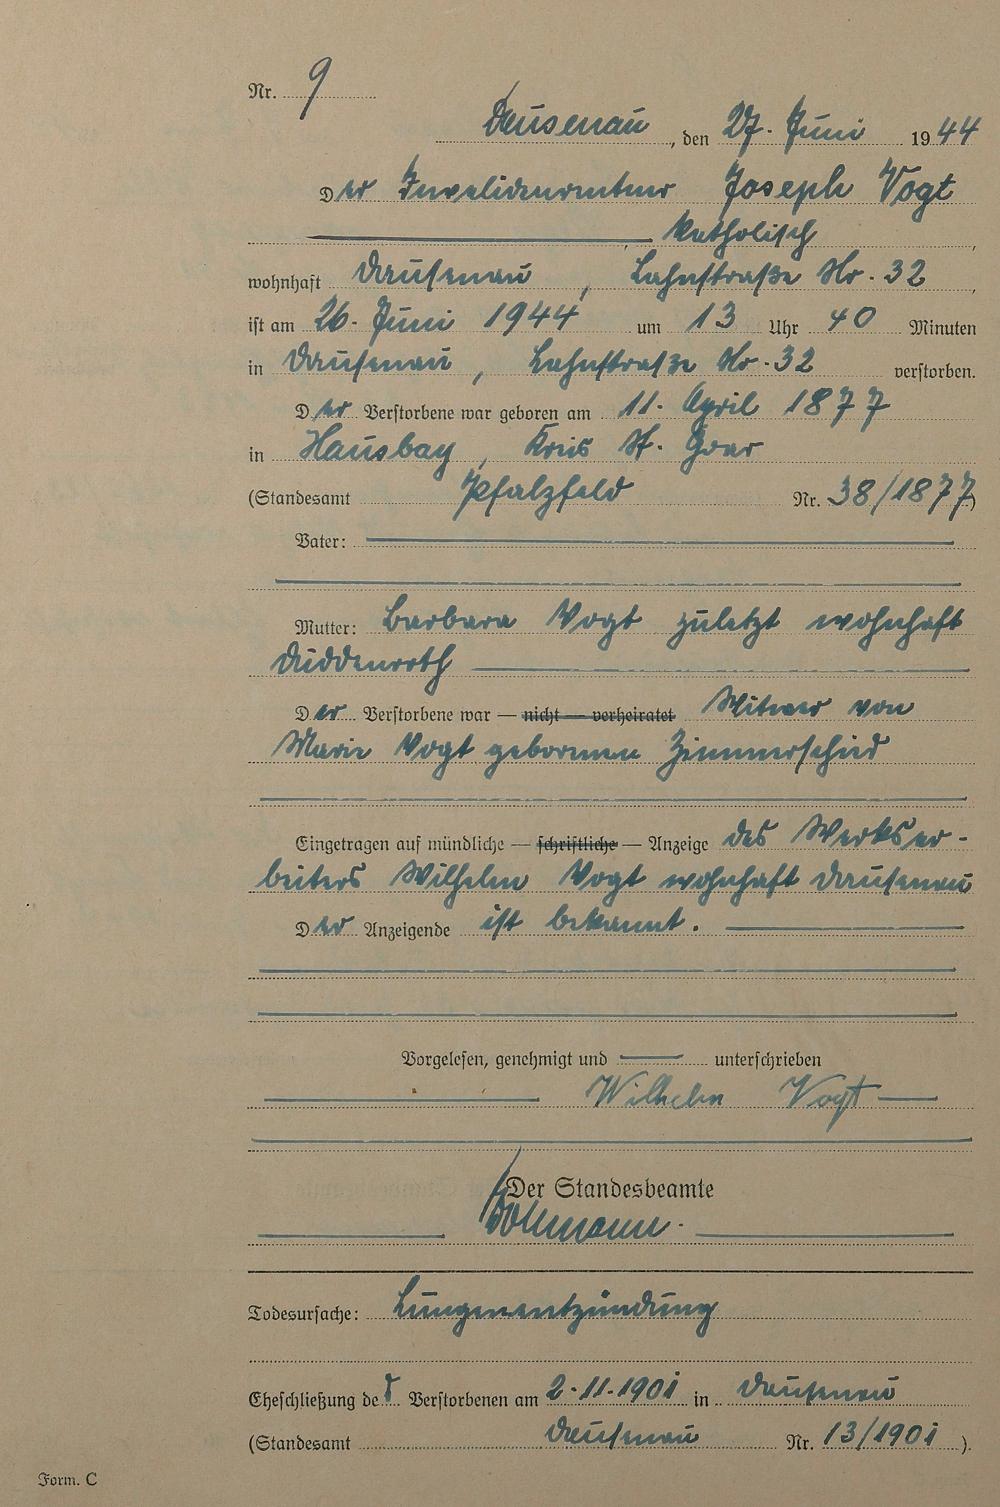 Nr. 9
Dausenau, den 27. Juni 1944
Der Invalidenrentner Joseph Vogt
katholisch
wohnhaft Dausenau, Lahnstraße Nr. 32,
ist am 26. Juni 1944 um 13 Uhr 40 Minuten
in Dausenau, Lahnstraße Nr. 32 verstorben.
Der Verstorbene war geboren am 11. April 1877
in Hausbay, Kreis St. Goar
(Standesamt Pfalzfeld Nr. 38/1877)
Vater:
Mutter: Barbara Vogt zuletzt wohnhaft
Duddenroth
Der Verstorbene war — nicht — verheiratet Witwer von
Marie Vogt geborenen Zimmerschied
Eingetragen auf mündliche — schriftliche — Anzeige des Werksar-
beiters Wilhelm Vogt wohnhaft Dausenau
Der Anzeigende ist bekannt.
Vorgelesen, genehmigt und unterschrieben
Wilhelm Vogt
Der Standesbeamte
Todesursache: Lungenentzündung
Eheschließung des Verstorbenen am 2.11.1901 in Dausenau
(Standesamt Dausenau Nr. 13/1901).
Form. C